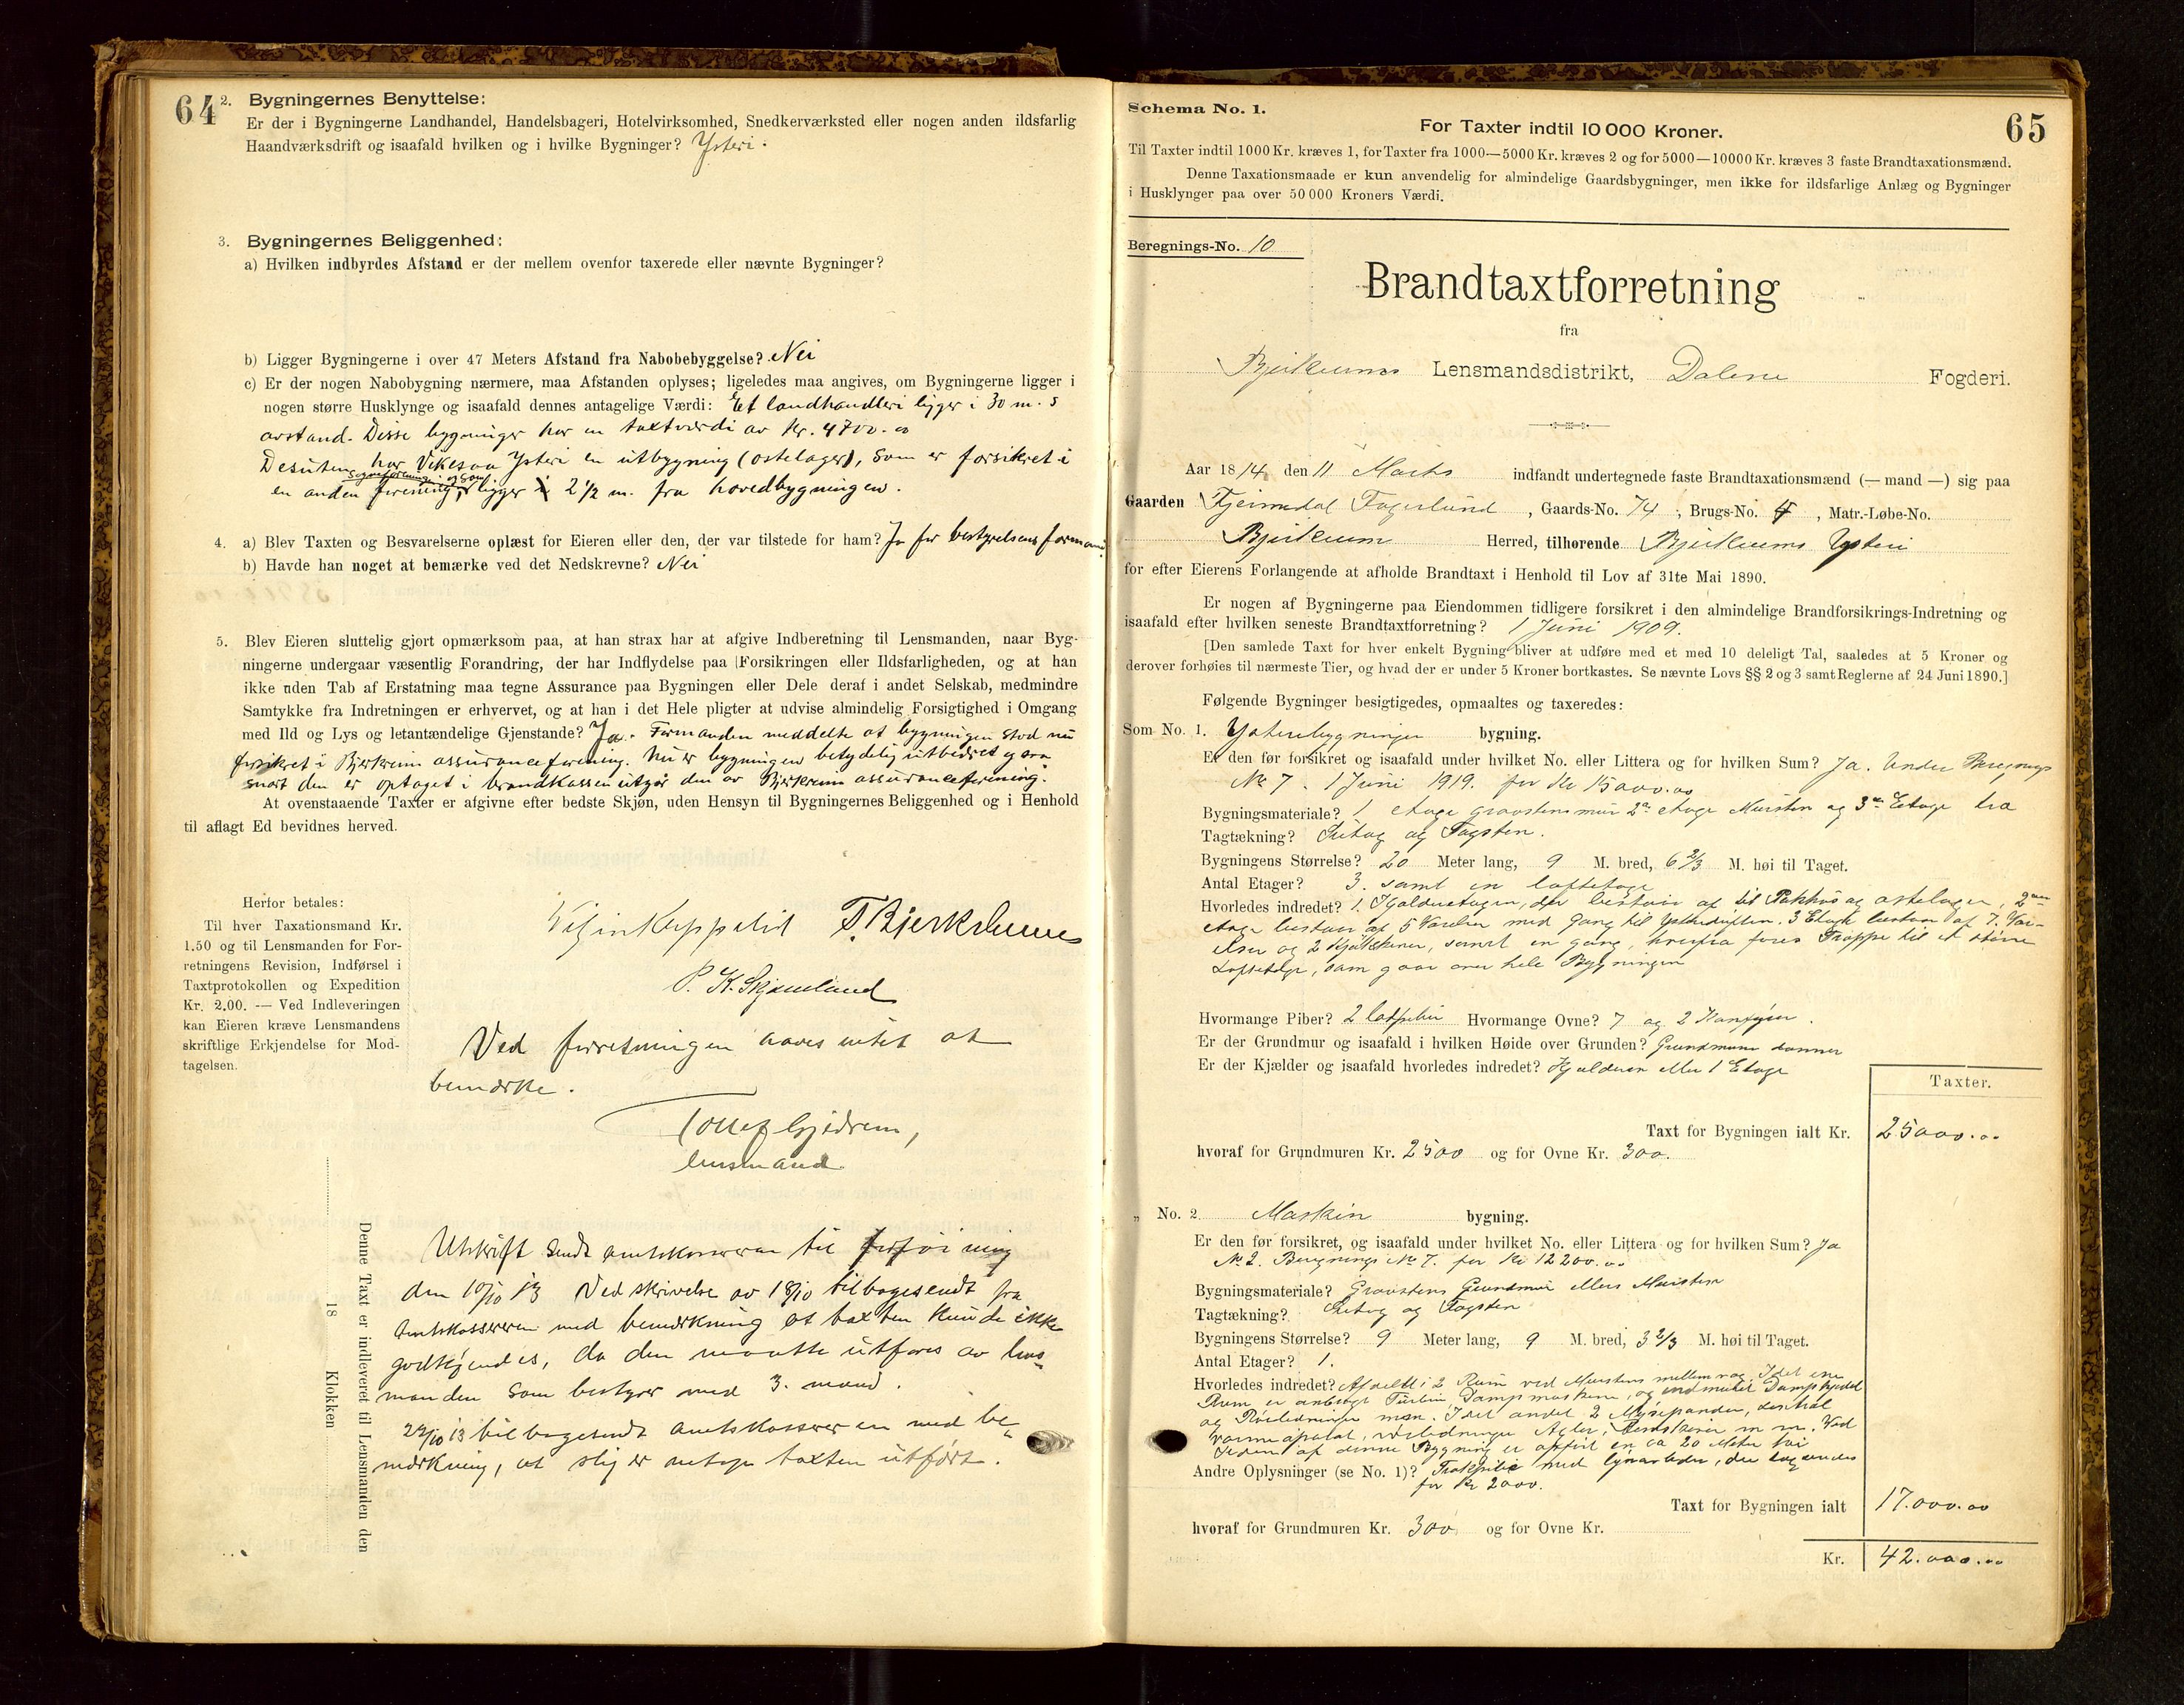 64
2. Bygningernes Benyttelse:
Er der i Bygningerne Landhandel, Handelsbageri, Hotelvirksomhed, Snedkerværksted eller nogen anden ildsfarlig
Haandværksdrift og isaafald hvilken og i hvilke Bygninger? Ysteri.
3. Bygningernes Beliggenhed:
a) Hvilken indbyrdes Afstand er der mellem ovenfor taxerede eller nævnte Bygninger?
b) Ligger Bygningerne i over 47 Meters Afstand fra Nabobebyggelse? Nei
c) Er der nogen Nabobygning nærmere, maa Afstanden oplyses; ligeledes maa angives, om Bygningerne ligger i
nogen større Husklynge og isaafald dennes antagelige Værdi: Et landhandleri ligger i 30 m. s
avstand. Disse bygninger har en taxtværdi av Kr. 4700.00
Desuten har Vikesaa Ysteri en utbygning (ostelager), som er forsikret i
en anden forening, og som ligger i 2 1/2 m. fra hovedbygningen.
4. a) Blev Taxten og Besvarelserne oplæst for Eieren eller den, der var tilstede for ham? Ja for bestyrelsens formand
b) Havde han noget at bemærke ved det Nedskrevne? Nei
5. Blev Eieren sluttelig gjort opmærksom paa, at han strax har at afgive Indberetning til Lensmanden, naar Byg-
ningerne undergaar væsentlig Forandring, der har Indflydelse paa Forsikringen eller Ildsfarligheden, og at han
ikke uden Tab af Erstatning maa tegne Assurance paa Bygningen eller Dele deraf i andet Selskab, medmindre
Samtykke fra Indretningen er erhvervet, og at han i det Hele pligter at udvise almindelig Forsigtighed i Omgang
med Ild og Lys og letantændelige Gjenstande? Ja. Formanden meddelte at bygningen stod nu
forsikret i Bjerkreim assuranceforening. Nu er bygningen betydelig utbedret og saa
snart den er optaget i brandkassen utgår den av Bjerkreim assuranceforening.
At ovenstaaende Taxter er afgivne efter bedste Skjøn, uden Hensyn til Bygningernes Beliggenhed og i Henhold
til aflagt Ed bevidnes herved.
Herfor betales:
Til hver Taxationsmand Kr.
1.50 og til Lensmanden for For-
retningens Revision, Indførsel i
Taxtprotokollen og Expedition
Kr. 2.00. — Ved Indleveringen
kan Eieren kræve Lensmandens
skriftlige Erkjendelse for Mod-
tagelsen.
P. K. Skjæveland
Ved forretningen haves intet at
bemærke.
Tollef Gjedrem,
lensmand
Denne Taxt er indleveret til Lensmanden den
18 Klokken
Utskrift sendt amtskassereren til
den 10/10 13 Ved skrivelse av 18/10 tilbagesendt fra
Amtskassereren med bemerkning at taxten kunde ikke
godkjendes, da den maatte utføres av lens-
manden som bestyrer med 3. mand.
22/10 13 tilbagesendt amtskassereren med be-
mærkning, at slig er netop taxten utført.
65
Schema No. 1.
For Taxter indtil 10 000 Kroner.
Til Taxter indtil 1000 Kr. kræves 1, for Taxter fra 1000—5000 Kr. kræves 2 og for 5000—10000 Kr. kræves 3 faste Brandtaxationsmænd.
Denne Taxationsmaade er kun anvendelig for almindelige Gaardsbygninger, men ikke for ildsfarlige Anlæg og Bygninger
i Husklynger paa over 50 000 Kroners Værdi.
Beregnings-No. 10
Brandtaxtforretning
fra
Bjerkreims Lensmandsdistrikt, Dalene Fogderi.
Aar 1814 den 11 Marts indfandt undertegnede faste Brandtaxationsmænd (— mand —) sig paa
Gaarden Tjeimdal Fagerlund, Gaards-No. 74, Brugs-No. 4, Matr.-Løbe-No.
Bjerkreim Herred, tilhørende Bjerkreims Ysteri
for efter Eierens Forlangende at afholde Brandtaxt i Henhold til Lov af 31te Mai 1890.
Er nogen af Bygningerne paa Eiendommen tidligere forsikret i den almindelige Brandforsikrings-Indretning og
isaafald efter hvilken seneste Brandtaxtforretning? 1 Juni 1909.
[Den samlede Taxt for hver enkelt Bygning bliver at udføre med et med 10 deleligt Tal, saaledes at 5 Kroner og
derover forhøies til nærmeste Tier, og hvad der er under 5 Kroner bortkastes. Se nævnte Lovs §§ 2 og 3 samt Reglerne af 24 Juni 1890.]
Følgende Bygninger besigtigedes, opmaaltes og taxeredes:
Som No. 1. Ysteribygningen bygning.
Er den før forsikret og isaafald under hvilket No. eller Littera og for hvilken Sum? Ja. Under Beregnings
No 7. 1 Juni 1919. for Kr 15000.00
Bygningsmateriale? 1 etage graastensmur 2den etage Mursten og 3die Etage træ
Tagtækning? Sutag og Tagsten.
Bygningens Størrelse? 20 Meter lang, 9 M. bred, 6 2/3 M. høi til Taget.
Antal Etager? 3. samt en loftetage
Hvorledes indredet? 1. Kjælderetagen, der bestaar af til Pakhus og ostelager, 2den
etage bestaar af 5 Værelser med Gang til Ysteridriften. 3 Etage bestaar af 7. Vær-
elser og 2 Kjøkkener, samt en gang, hvorfra fører Trappe til et større
Loftetage, som gaar over hele Bygningen
Hvormange Piber? 2 Hvormange Ovne? 7 og 2 Komfyrer.
Er der Grundmur og isaafald i hvilken Høide over Grunden? Grundmuren danner
Er der Kjælder og isaafald hvorledes indredet? Kjælderen eller 1 Etage
Taxter.
Taxt for Bygningen ialt Kr. 25000.00
hvoraf for Grundmuren Kr. 2500 og for Ovne Kr. 300.
„ No. 2. Maskin bygning.
Er den før forsikret, og isaafald under hvilket No. eller Littera og for hvilken Sum? Ja
No 2. Beregnings No 7. for Kr 12200.00
Bygningsmateriale? Graastens Grundmur ellers Mursten
Tagtækning? Sutag og Tagsten
Bygningens Størrelse? 9 Meter lang, 9 M. bred, 3 2/3 M. høi til Taget.
Antal Etager? 1.
Hvorledes indredet? Afdelt i 2 Rum ved Murstens mellemvæg. I det ene
Rum er anbragt Turbin, Dampmaskine, og indmuret Dampkjedel
og Rørledninger m.m. I det andet 2 Mysepander, Central
varmeaparat, rørledninger m m. Ved
Siden af denne Bygning er opført en ca 20 Meter høi
Andre Oplysninger (se No. 1)? Fabrikpibe med lynavleder, der taxeredes
for Kr 2000.
Taxt for Bygningen ialt 17.000.00
hvoraf for Grundmuren Kr. 300 og for Ovne Kr.
Kr. 42.000.00